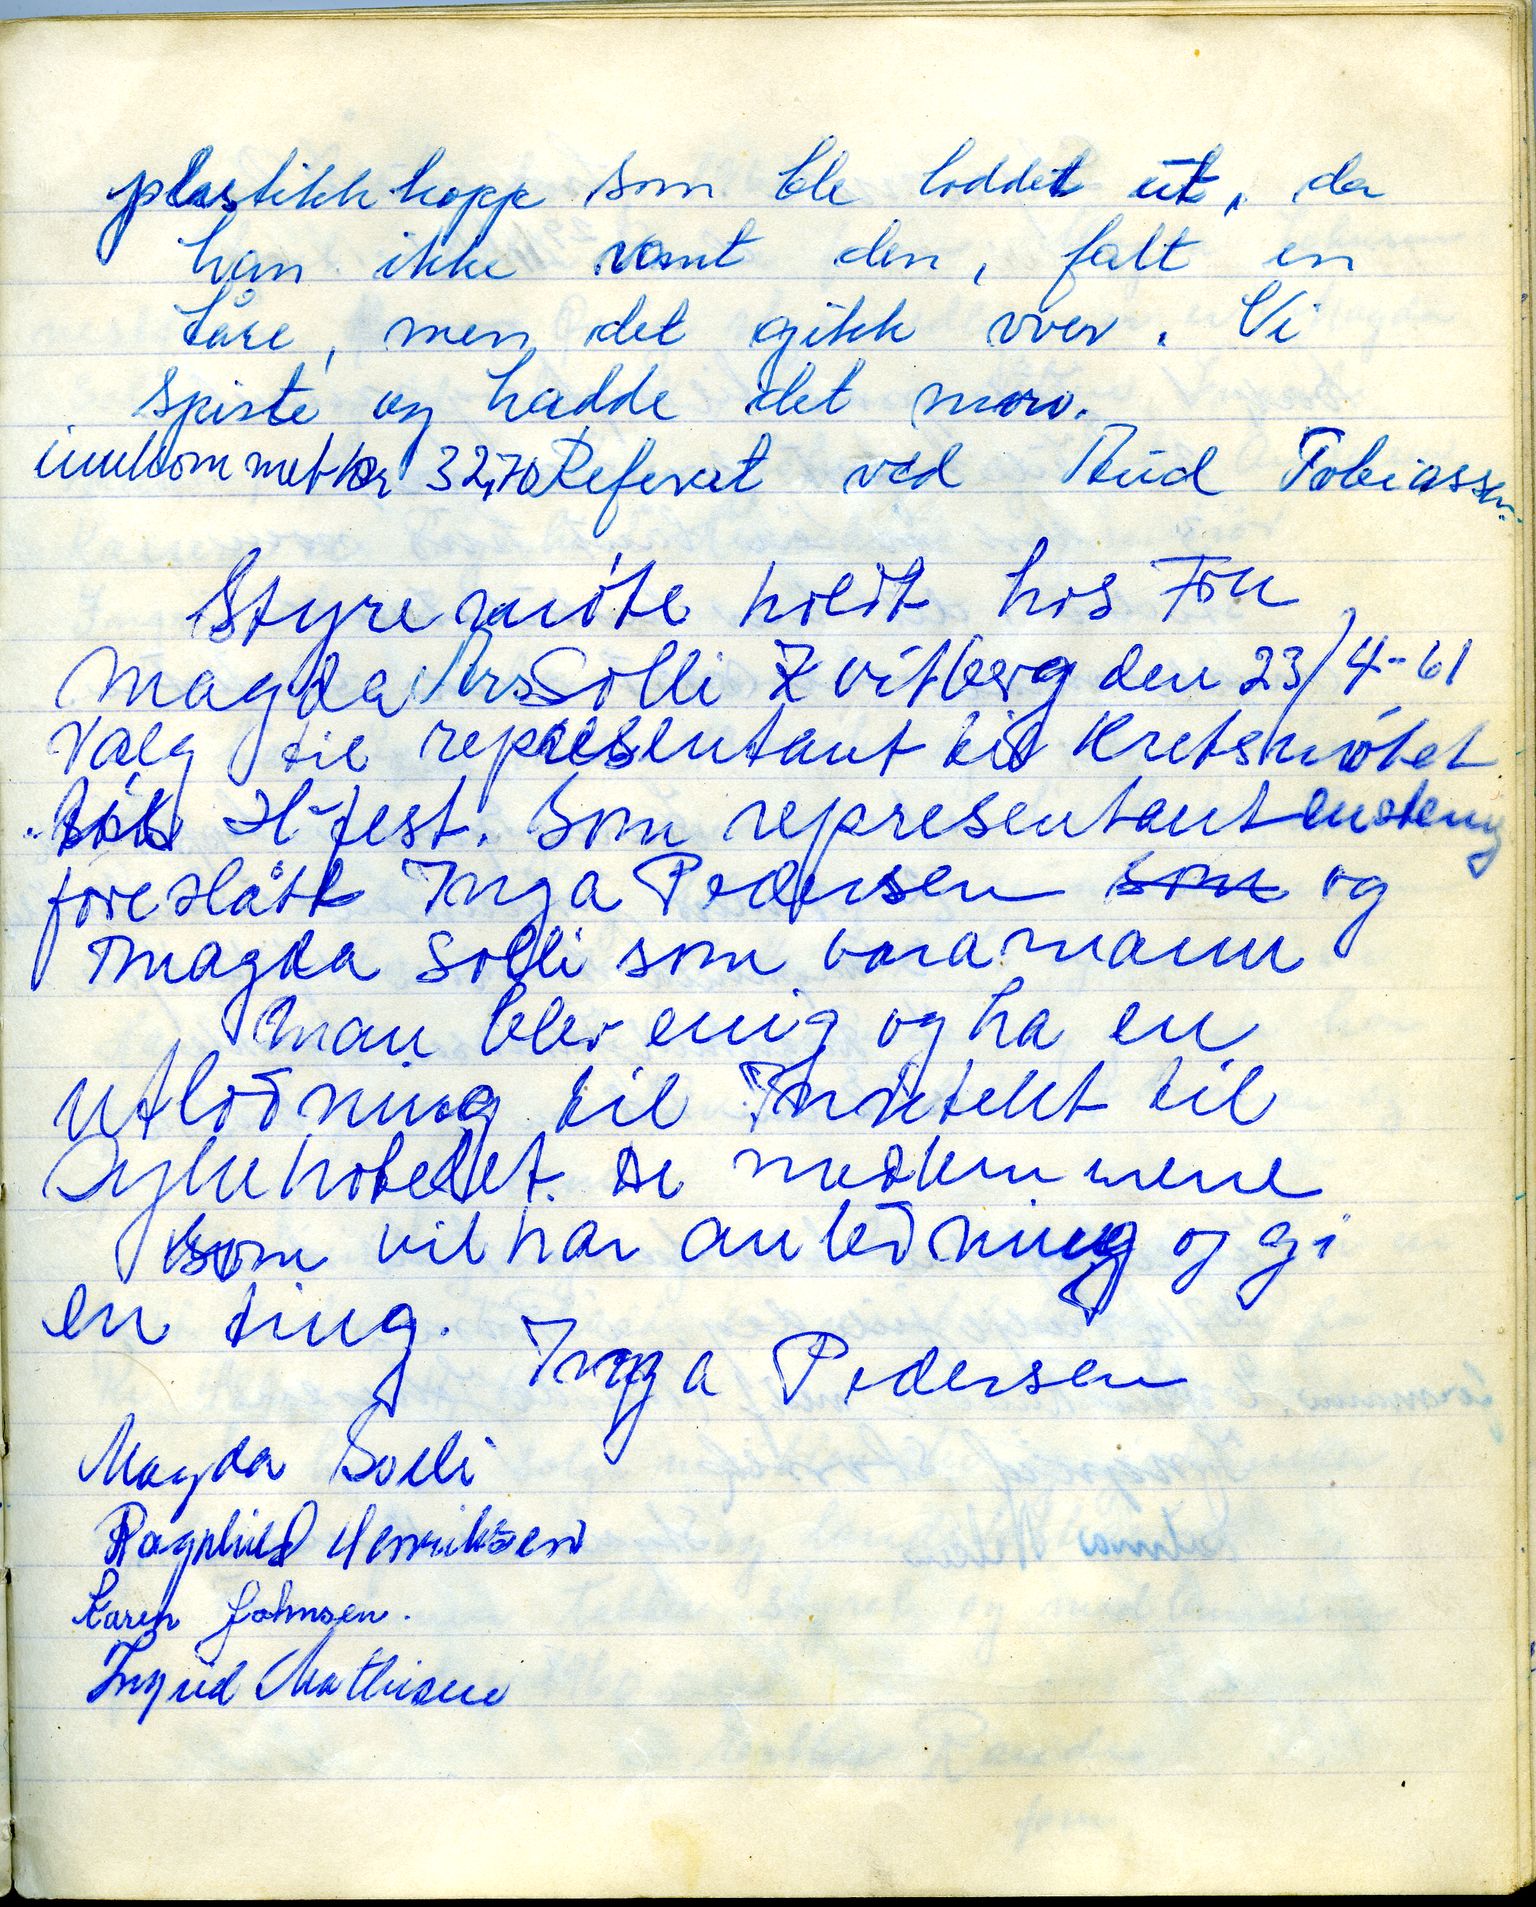 plastikkkopp som ble loddet ut, da
han ikke vant den, falt en
tåre, men det gikk over. Vi
spiste og hadde det moro.
innkommet kr 32,70 Referat ved Aud Tobiassen.
Styremöte holdt hos Fru
Magda Solli Kvitberg den 23/4-61
Valg til representant til Kretsmötet
H-fest. Som representant enstemig
foreslått Inga Pedersen som og
Magda Solli som varamann
Man blev enig og ha en
utlodning til Inntekt til
Sykehotellet. De medlemmene
som vil har anledning og gi
en ting.
Inga Pedersen
Magda Solli
Ragnhild Henriksen
Karen Johnsen.
Ingrid Mathisen